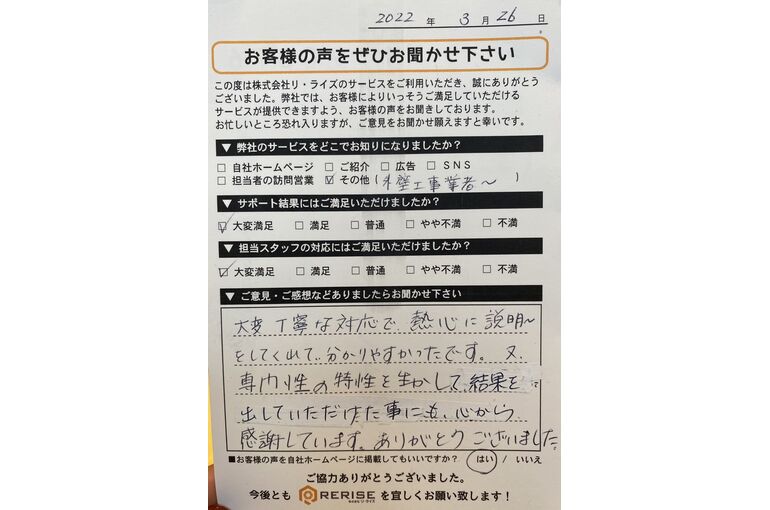 2022 年 3 月 26 日
お客様の声をぜひお聞かせ下さい
この度は株式会社リ・ライズのサービスをご利用いただき、誠にありがとう
ございました。弊社では、お客様によりいっそうご満足していただける
サービスが提供できますよう、お客様の声をお聞きしております。
お忙しいところ恐れ入りますが、ご意見をお聞かせ願えますと幸いです。
▼ 弊社のサービスをどこでお知りになりましたか?
□ 自社ホームページ □ ご紹介 □ 広告 □ SNS
□ 担当者の訪問営業 ☑ その他 ( 外壁工事業者〜 )
▼ サポート結果にはご満足いただけましたか?
☑ 大変満足 □ 満足 □ 普通 □ やや不満 □ 不満
▼ 担当スタッフの対応にはご満足いただけましたか?
☑ 大変満足 □ 満足 □ 普通 □ やや不満 □ 不満
▼ ご意見・ご感想などありましたらお聞かせ下さい
大変丁寧な対応で、熱心に説明〜
をしてくれて、分かりやすかったです。又、
専門性の特性を生かして、結果を
出していただけた事にも、心から
感謝しています。ありがとうございました。
■お客様の声を自社ホームページに掲載してもいいですか? はい / いいえ
ご協力ありがとうございました。
今後とも RERISE 株式会社リ・ライズ を宜しくお願い致します！